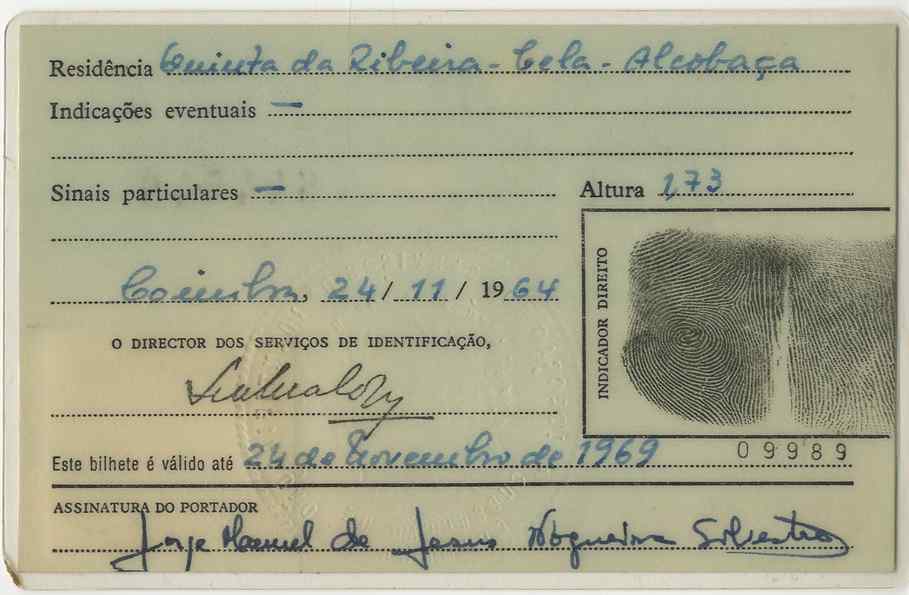 Residência Quinta da Ribeira - Cela - Alcobaça
Indicações eventuais —
Sinais particulares — Altura 1,73
INDICADOR DIREITO
Coimbra, 24 / 11 / 1964
O DIRECTOR DOS SERVIÇOS DE IDENTIFICAÇÃO,
Este bilhete é válido até 24 de Novembro de 1969
09989
ASSINATURA DO PORTADOR
Jorge Manuel de Jesus Nogueira Silvestre